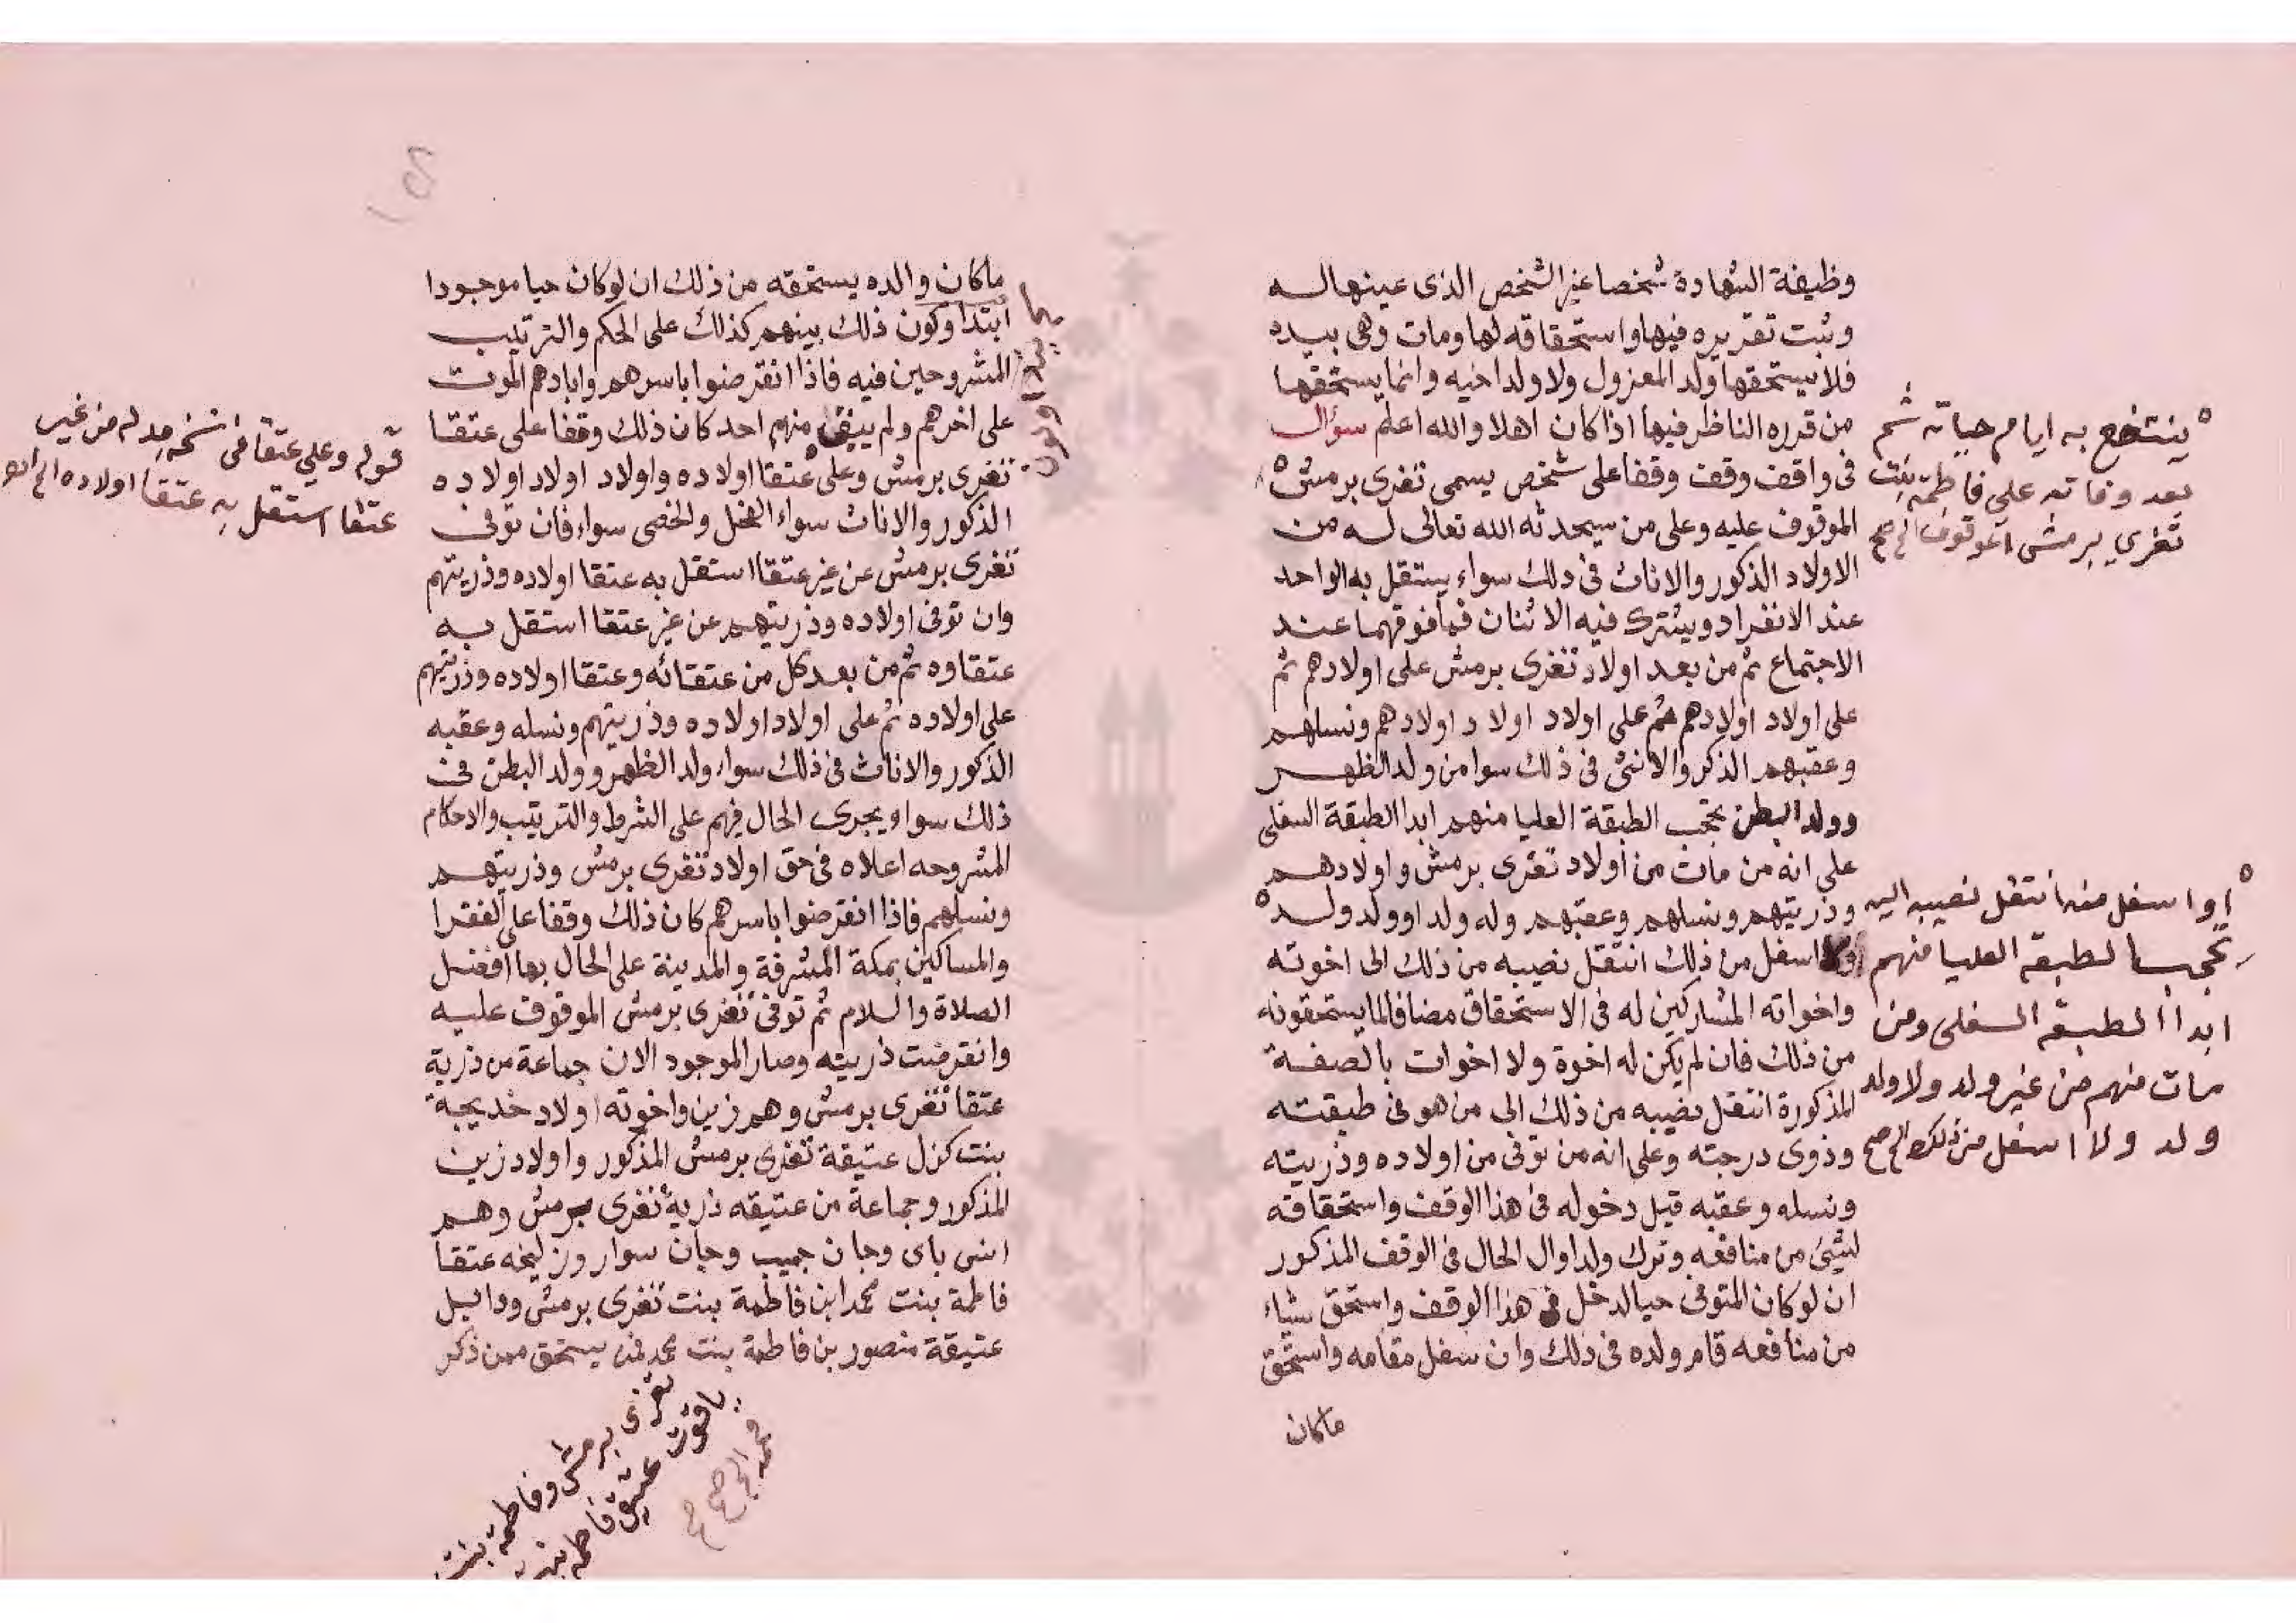 وظيفة الشهادة شخصا غير الشخص الذى عينها له
وثبت تقريره فيها واستحقاقه لها ومات وهى بيده
فلا يستحقها ولد المعزول ولا ولد اخيه وانما يستحقها
من قرره الناظر فيها اذا كان اهلا والله اعلم سؤال
فى واقف وقف وقفا على شخص يسمى تغرى برمش
الموقوف عليه وعلى من سيحدثه الله تعالى له من
الاولاد الذكور والاناث فى ذلك سواء يستقل به الواحد
عند الانفراد ويشترك فيه الاثنان فما فوقهما عند
الاجتماع ثم من بعد اولاد تغرى برمش على اولادهم ثم
على اولاد اولادهم ثم على اولاد اولاد اولادهم ونسلهم
وعقبهم الذكر والانثى فى ذلك سوا من ولد الظهر
وولد البطن تحجب الطبقة العليا منهم ابدا الطبقة السفلى
على انه من مات من اولاد تغرى برمش واولادهم
وذريتهم ونسلهم وعقبهم وله ولد او ولد ولد
اسفل من ذلك انتقل نصيبه من ذلك الى اخوته
واخواته المشاركين له فى الاستحقاق مضافا لما يستحقونه
من ذلك فان لم يكن له اخوة ولا اخوات بالصفة
المذكورة انتقل نصيبه من ذلك الى من هو فى طبقته
وذوى درجته وعلى انه من توفى من اولاده وذريته
ونسله وعقبه قبل دخوله فى هذا الوقف واستحقاقه
لشئ من منافعه وترك ولدا وال الحال فى الوقف المذكور
ان لو كان المتوفى حيا لدخل فى هذا الوقف واستحق شياء
من منافعه قام ولده فى ذلك وان سفل مقامه واستحق
ماكان
ينتفع به ايام حياته ثم
بعد وفاته على فاطمة بنت
تغرى برمش الموقوف الخ صح
او اسفل منه انتقل نصيبه اليه
تحجب الطبقة العليا منهم
ابدا الطبقة السفلى ومن
مات منهم من غير ولد ولا ولد
ولد ولا اسفل من ذلك الخ صح
ماكان والده يستحقه من ذلك ان لو كان حيا موجودا
ابتدا وكون ذلك بينهم كذلك على الحكم والترتيب
المشروحين فيه فاذا انقرضوا باسرهم وابادهم الموت
على اخرهم ولم يبق منهم احد كان ذلك وقفا على عتقا
تغرى برمش وعلى عتقا اولاده واولاد اولاد اولاده
الذكور والاناث سواء الفحل والخصى سواء فان توفى
تغرى برمش عن غير عتقا استقل به عتقا اولاده وذريتهم
وان توفى اولاده وذريتهم عن غير عتقا استقل به
عتقاوه ثم من بعد كل من عتقائه وعتقا اولاده وذريتهم
على اولاده ثم على اولاد اولاده وذريتهم ونسله وعقبه
الذكور والاناث فى ذلك سواء ولد الظهر وولد البطن فى
ذلك سوا ويجرى الحال فيهم على الشرط والترتيب والاحكام
المشروحه اعلاه فى حق اولاد تغرى برمش وذريتهم
ونسلهم فاذا انقرضوا باسرهم كان ذلك وقفا على الفقرا
والمساكين بمكة المشرفة والمدينة على الحال بها افضل
الصلاة والسلام ثم توفى تغرى برمش الموقوف عليه
وانقرضت ذريته وصار الموجود الان جماعة من ذرية
عتقا تغرى برمش وهم زين واخوته اولاد خديجة
بنت كزل عتيقة تغرى برمش المذكور واولاد زين
المذكور وجماعة من عتيقه ذرية تغرى برمش وهم
انس باى وجان حبيب وجان سوار وزليخه عتقا
فاطمة بنت محمد ابن فاطمة بنت تغرى برمش ودابيل
عتيقة منصور بن فاطمة بنت محمد فمن يستحق ممن ذكر
قوله وعلى عتقا فى نسخه بدله من غير
عتقا استقل به عتقا اولاده الخ
تغرى برمش وفاطمة بنت
ياقوت عتيق فاطمه بنت
محمد الخ صح